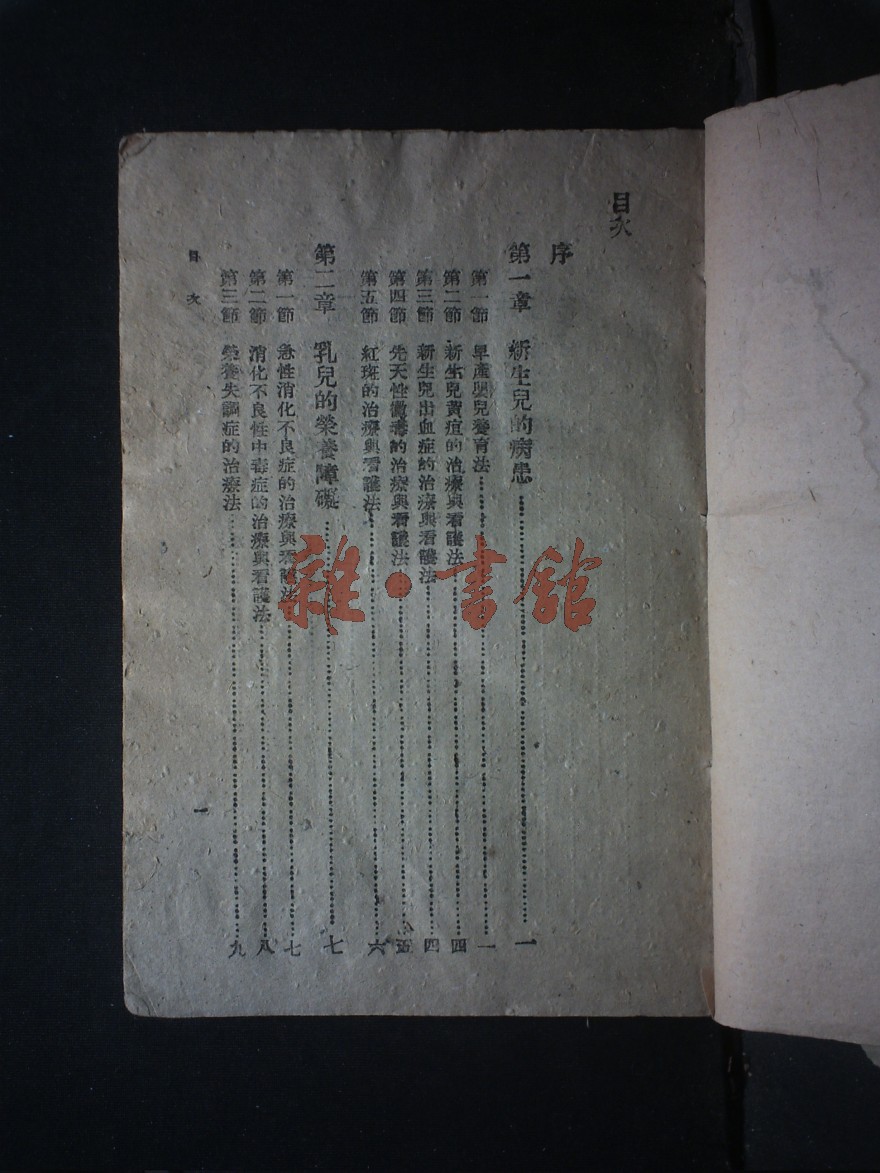 目次
序
第一章 新生兒的病患…………一
第一節 早產嬰兒養育法…………一
第二節 新生兒黃疸的治療與看護法…………四
第三節 新生兒出血症的治療與看護法…………四
第四節 先天性黴毒的治療與看護法…………五
第五節 紅斑的治療與看護法…………六
第二章 乳兒的榮養障礙…………七
第一節 急性消化不良症的治療與看護法…………七
第二節 消化不良性中毒症的治療與看護法…………八
第三節 榮養失調症的治療法…………九
目次 一
雜·書館